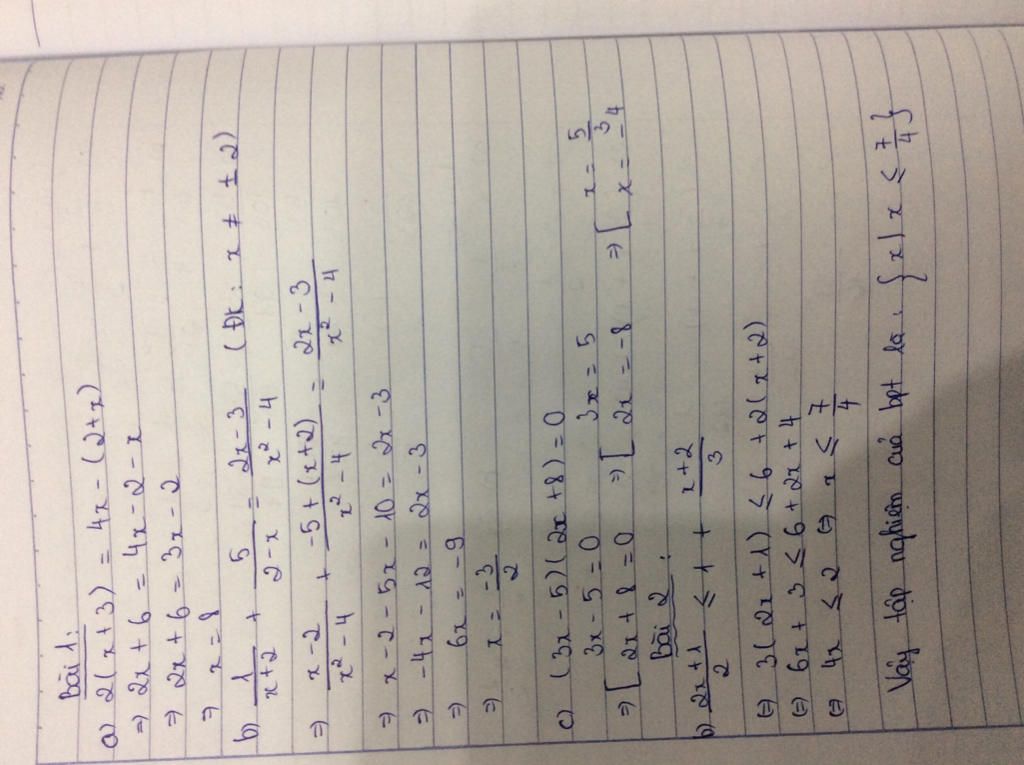 Bài 1:
a) 2(x+3) = 4x - (2+x)
⇒ 2x + 6 = 4x - 2 - x
⇒ 2x + 6 = 3x - 2
⇒ x = 8
b) 1/(x+2) + 5/(2-x) = (2x-3)/(x²-4) (Đk: x ≠ ±2)
⇒ (x-2)/(x²-4) + (-5+(x+2))/(x²-4) = (2x-3)/(x²-4)
⇒ x - 2 - 5x - 10 = 2x - 3
⇒ -4x - 12 = 2x - 3
⇒ 6x = -9
⇒ x = -3/2
c) (3x-5)(2x+8) = 0
⇒ [ 3x - 5 = 0 ⇒ [ 3x = 5 ⇒ [ x = 5/3
2x + 8 = 0 2x = -8 x = -4
Bài 2:
b) (2x+1)/2 ≤ 1 + (x+2)/3
⇔ 3(2x+1) ≤ 6 + 2(x+2)
⇔ 6x + 3 ≤ 6 + 2x + 4
⇔ 4x ≤ 2 ⇔ x ≤ 7/4
Vậy tập nghiệm của bpt là: {x | x ≤ 7/4}